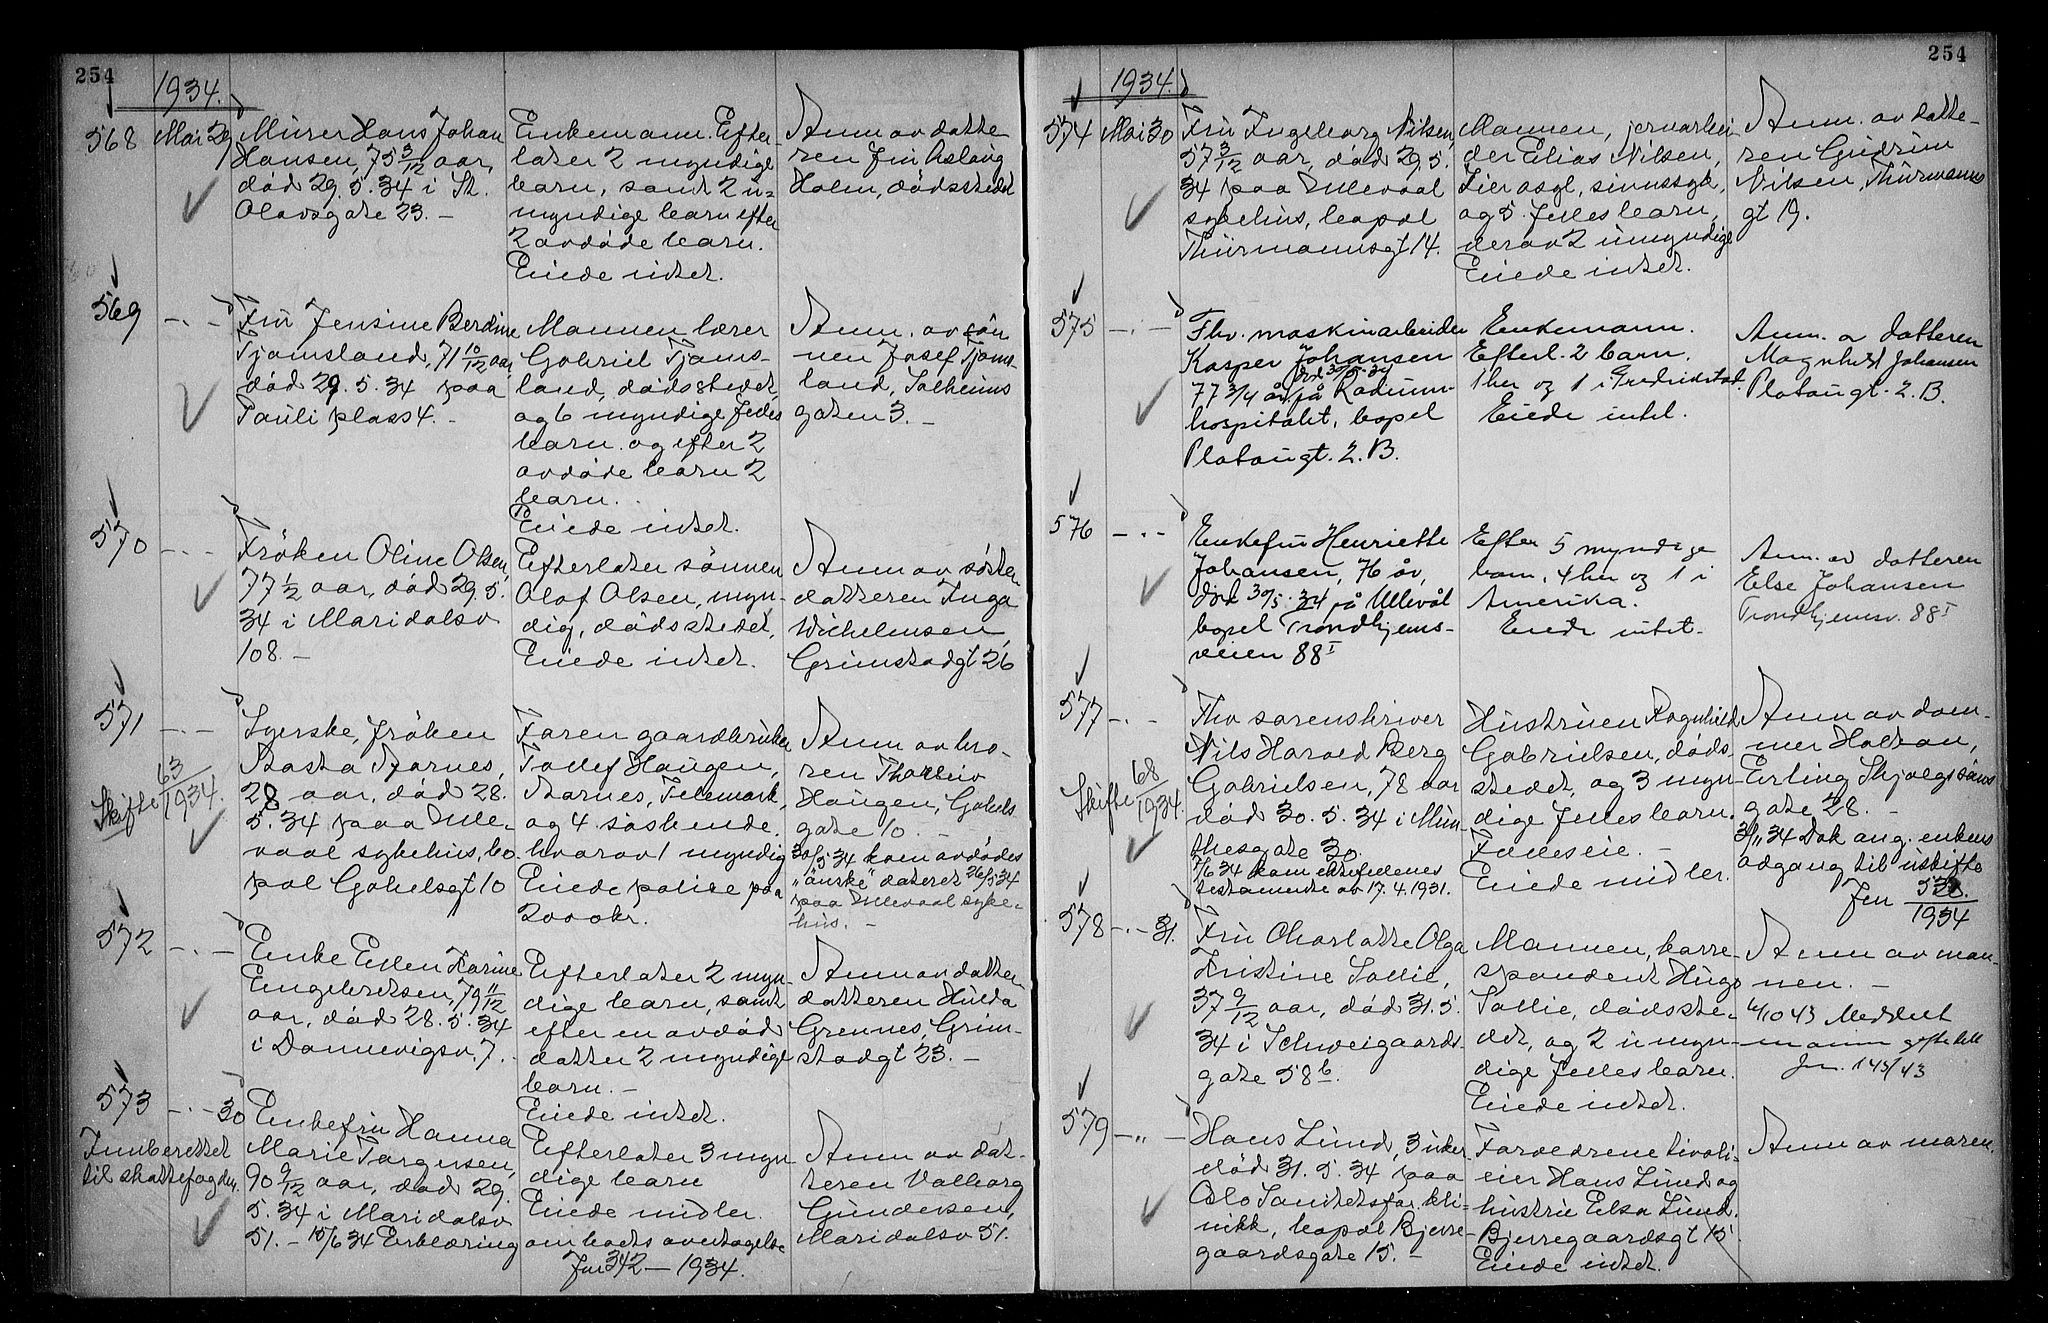 254
1934.
568
Mai 29
Murer Hans Johan
Hansen, 75 3/12 aar,
död 29.5.34 i St.
Olavsgate 23. –
Enkemann. Efter-
later 2 myndige
barn, samt 2 u-
myndige barn efter
2 avdöde barn.
Eiede intet.
Anm av datte
ren fru Aslaug
Holm, dödsstedet
569
–.–
Fru Jensine Berdine
Tjomsland, 71 10/12 aar,
död 29.5.34 paa
Pauli plass 4. –
Mannen lærer
Gabriel Tjoms-
land, dödsstedet,
og 6 myndige felles
barn og efter 2
avdöde barn 2
barn.
Eiede intet.
Anm. av sön
nen Josef Tjoms-
land, Solheims
gaten 3. –
570
–.–
Fröken Oline Olsen,
77 1/2 aar, död 29.5.
34 i Maridalsv
108. –
Efterlater sönnen
Olof Olsen, myn-
dig, dödsstedet.
Eiede intet.
Anm av söster
datteren Inga
Wilhelmsen,
Grimstadgt 26
571
–.–
Skifte 63/1934.
Syerske, fröken
Aasta Aarnes,
28 aar, död 28.
5.34 paa Ulle-
vaal sykehus, bo
pæl Gabelsgt 10
Faren gaardbruker
Tollef Haugen,
Aarnes, Telemark,
og 4 söskende
hvorav 1 myndig
Eiede polise paa
2000 kr.
Anm av bro-
ren Thorleiv
Haugen, Gabels
gate 10. –
30/5 34 kom avdödes
"önske" dateret 26/5 34
paa Ullevaal syke-
hus. –
572
–.–
Enke Ellen Karine
Engebretsen, 79 11/12
aar, död 28.5.34
i Dannevigsv. 7.
Efterlater 2 myn-
dige barn, samt
efter en avdöd
datter 2 myndige
barn. –
Eiede intet.
Anm av datter
datteren Hulda
Grennes, Grim-
stadgt 23. –
573
–.– 30
Innberettet
til skattefogden.
Enkefru Hanna
Marie Torgersen,
90 9/12 aar, död 29.
5.34 i Maridalsv
51. – 15/6 34 Erklæring
Efterlater 3 myn
dige barn
Eiede midler.
om boets overtagelse
Jnr 342 – 1934.
Anm av dat-
teren Valborg
Gundersen,
Maridalsv 51.
254
1934.
574
Mai 30
Fru Ingeborg Nilsen,
57 3/12 aar, död 29.5.
34 paa Ullevaal
sykehus, bopæl
Thurmannsgt 14.
Mannen, jernarbei
der Elias Nilsen,
Lier asyl, sinnssyk,
og 5 felles barn,
derav 2 umyndige
Eiede intet.
Anm. av datte-
ren Gudrun
Nilsen, Thurmanns
gt 19.
575
–.–
Fhv. maskinarbeider
Kasper Johansen
död 30/5 34
77 3/4 år, på Radium-
hospitalet, bopel
Platougt. 2. B.
Enkemann.
Efterl. 2 barn.
1 her og 1 i Fredrikstad.
Eiede intet.
Anm. a datteren
Magnhild Johansen
Platougt. 2. B.
576
–.–
Enkefru Henriette
Johansen, 76 år,
död 30/5.34 på Ullevål
bopel Trondhjems-
veien 88 I
Efter 5 myndige
barn, 4 her og 1 i
Amerika.
Eiede intet.
Anm. av datteren
Else Johansen
Trondhjemsv. 88 I
577
–.–
Skifte 68/1934.
Fhv sorenskriver
Nils Harald Berg
Gabrielsen, 78 aar
död 30.5.34 i Mun-
thesgate 30.
7/6 34 kom ektefellenes
testamente av 17.4.1931.
Hustruen Ragnhild
Gabrielsen, döds
stedet, og 3 myn-
dige felles barn.
Felleseie. –
Eiede midler.
Anm av dom-
mer Holtan,
Erling Skjalgssöns
gate 28. –
3/11 34 Dok ang. enkens
adgang til uskifte
Jnr 1934
578
–.– 31.
Fru Charlotte Olga
Kristine Sollie,
37 9/12 aar, död 31.5.
34 i Schweigaards-
gate 58 b.
Mannen, korre
spondent Hugo
Sollie, dödsste-
det, og 2 umyn-
dige felles barn.
Eiede intet.
Anm av man-
nen. –
10 43 Meddelt
mann gifte till
Jnr. 143/43
579
–"–
Hans Lund, 3 uker
död 31.5.34 paa
Oslo Sanitetsfor. kli-
nikk, bopæl Bjerre-
gaardsgate 15. –
Forældrene tivoli-
eier Hans Lund og
hustru Elsa Lund.
Bjerregaardsgt 15
Eiede intet.
Anm av moren.